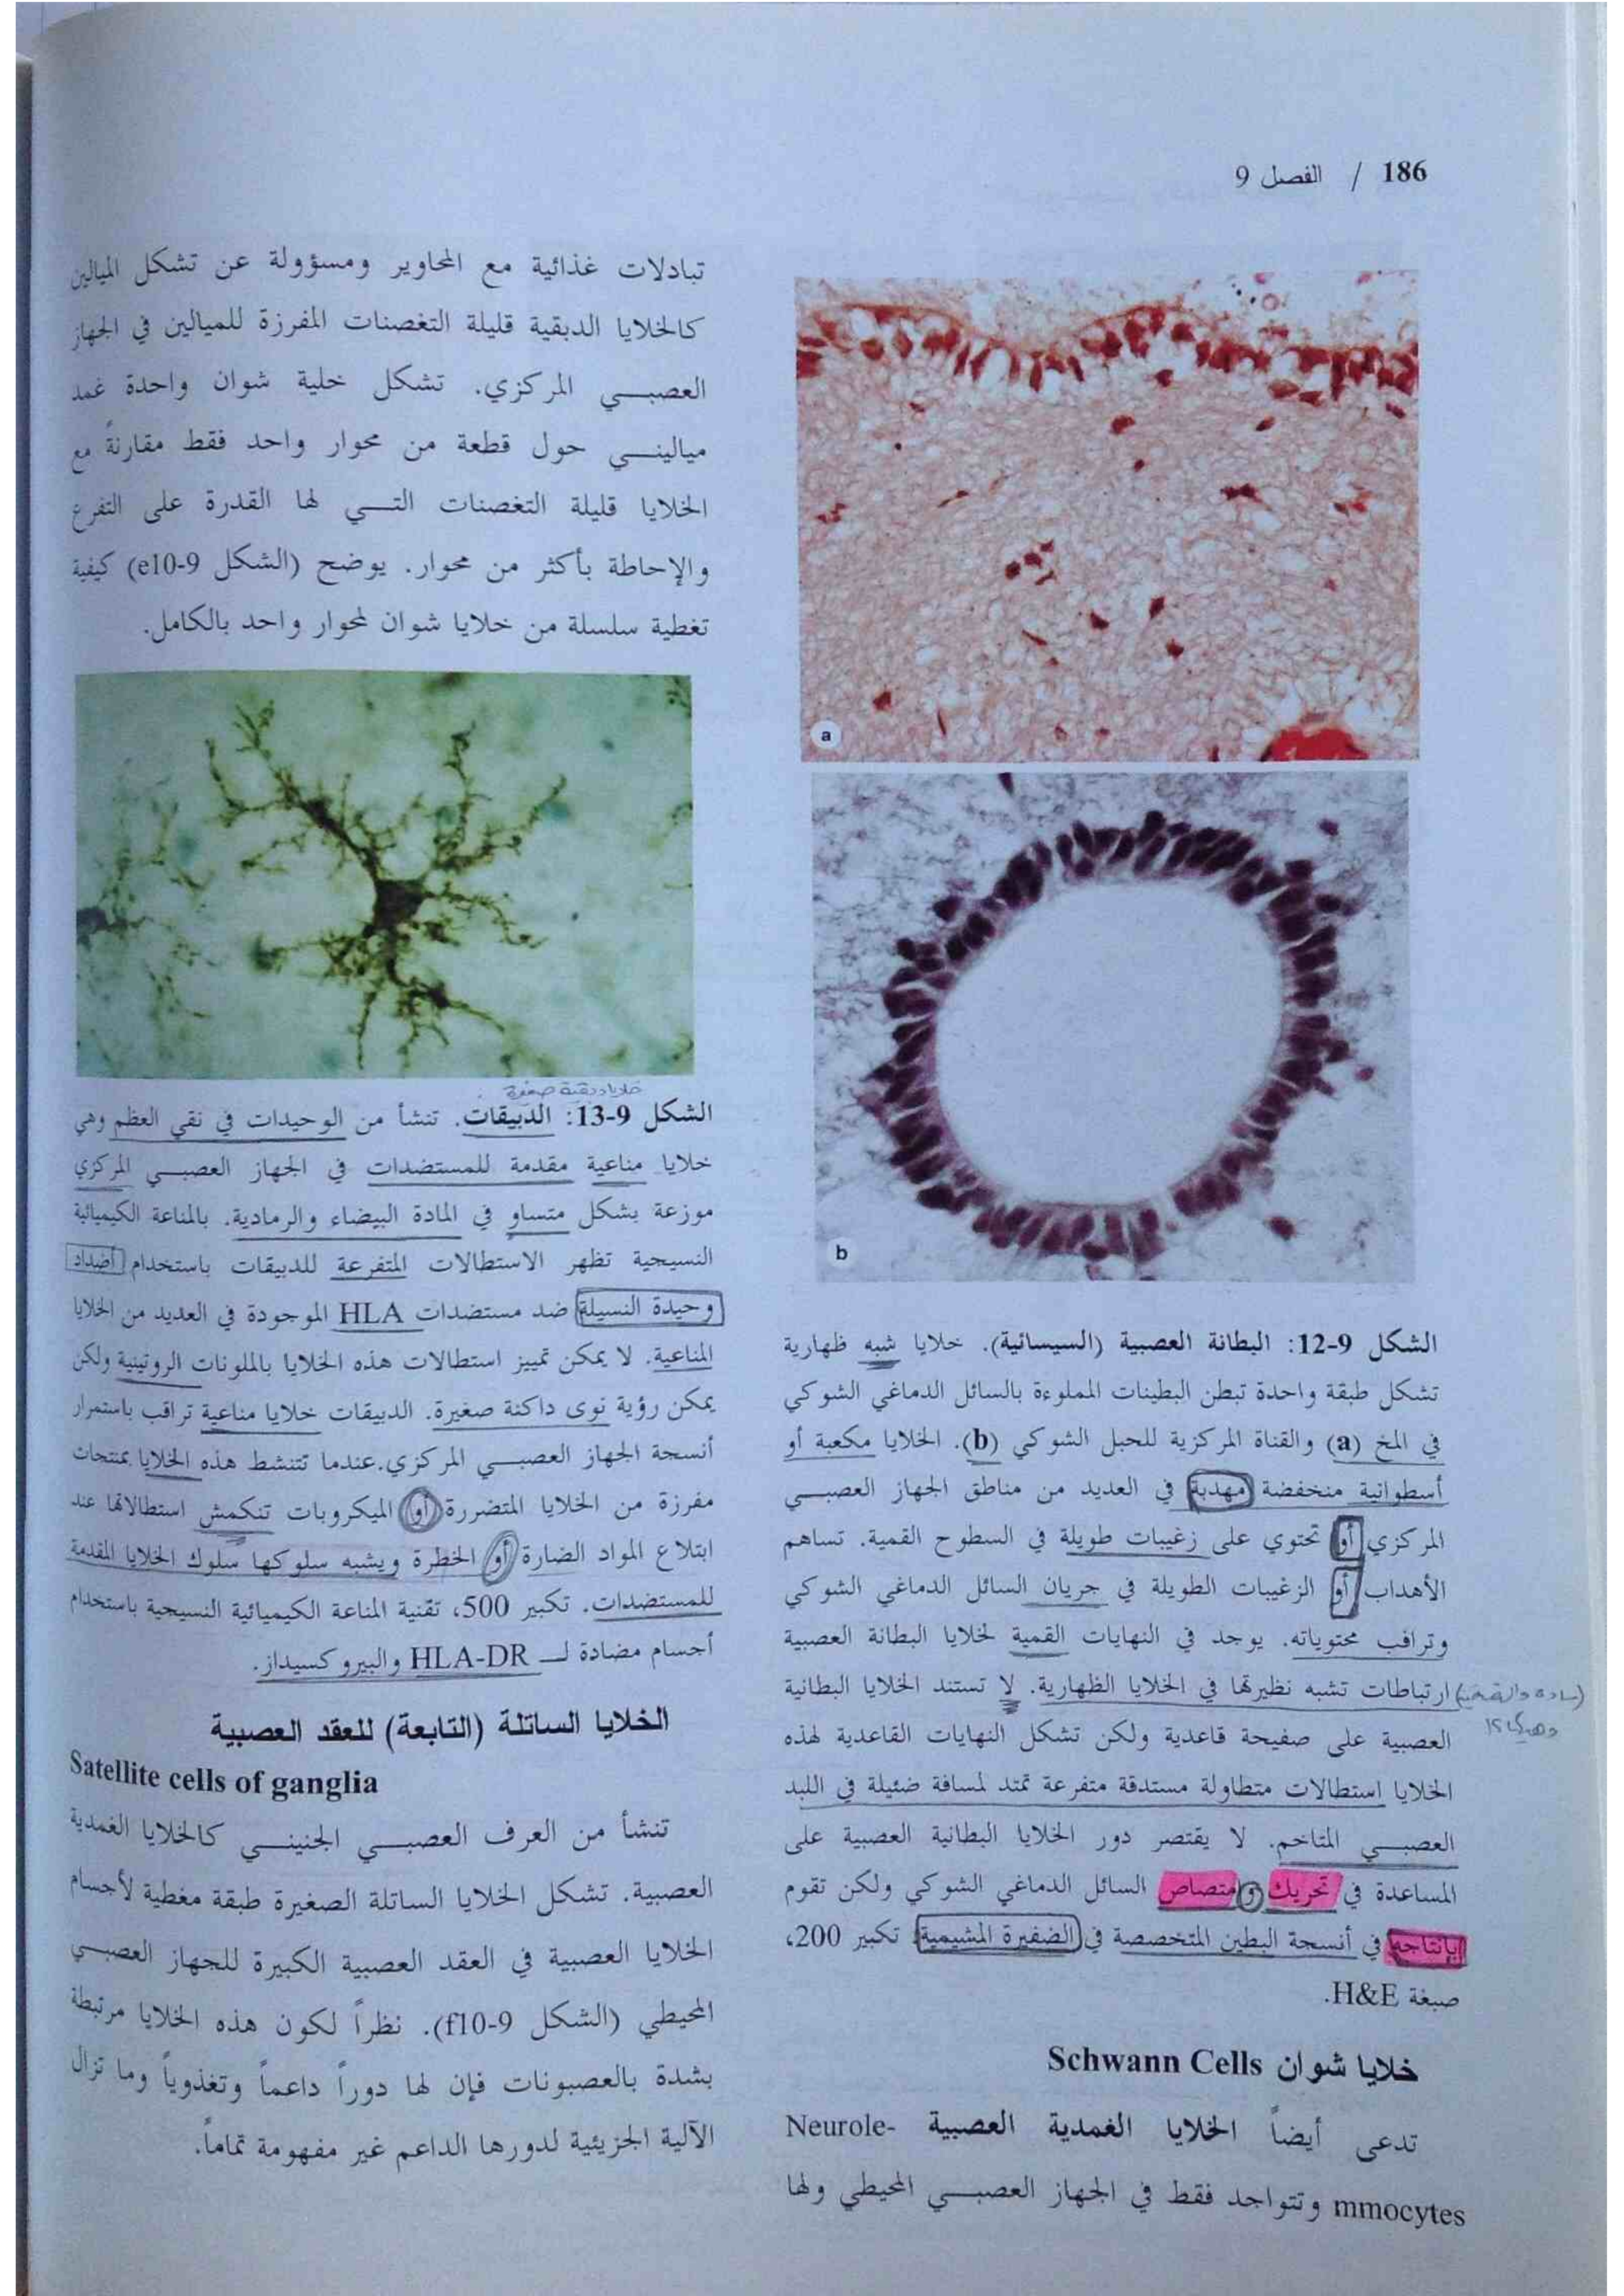 186 / الفصل 9
a
b
الشكل 9-12: البطانة العصبية (السيسائية). خلايا شبه ظهارية
تشكل طبقة واحدة تبطن البطينات المملوءة بالسائل الدماغي الشوكي
في المخ (a) والقناة المركزية للحبل الشوكي (b). الخلايا مكعبة أو
أسطوانية منخفضة مهدبة في العديد من مناطق الجهاز العصبي
المركزي أو تحتوي على زغيبات طويلة في السطوح القمية. تساهم
الأهداب أو الزغيبات الطويلة في جريان السائل الدماغي الشوكي
وتراقب محتوياته. يوجد في النهايات القمية لخلايا البطانة العصبية
ارتباطات تشبه نظيرتها في الخلايا الظهارية. لا تستند الخلايا البطانية
العصبية على صفيحة قاعدية ولكن تشكل النهايات القاعدية لهذه
الخلايا استطالات متطاولة مستدقة متفرعة تمتد لمسافة ضئيلة في اللبد
العصبي المتاخم. لا يقتصر دور الخلايا البطانية العصبية على
المساعدة في تحريك و متصاص السائل الدماغي الشوكي ولكن تقوم
بإنتاجه في أنسجة البطين المتخصصة في الضفيرة المشيمية. تكبير 200،
صبغة H&E.
خلايا شوان Schwann Cells
تدعى أيضاً الخلايا الغمدية العصبية Neurole-
mmocytes وتتواجد فقط في الجهاز العصبي المحيطي ولها
تبادلات غذائية مع المحاوير ومسؤولة عن تشكل الميالين
كالخلايا الدبقية قليلة التغصنات المفرزة للميالين في الجهاز
العصبي المركزي. تشكل خلية شوان واحدة غمد
مياليني حول قطعة من محوار واحد فقط مقارنةً مع
الخلايا قليلة التغصنات التي لها القدرة على التفرع
والإحاطة بأكثر من محوار. يوضح (الشكل 9-e10) كيفية
تغطية سلسلة من خلايا شوان لمحوار واحد بالكامل.
خلايا دبقية صغيرة
الشكل 9-13: الدبيقات. تنشأ من الوحيدات في نقي العظم وهي
خلايا مناعية مقدمة للمستضدات في الجهاز العصبي المركزي
موزعة بشكل متساو في المادة البيضاء والرمادية. بالمناعة الكيميائية
النسيجية تظهر الاستطالات المتفرعة للدبيقات باستخدام أضداد
وحيدة النسيلة ضد مستضدات HLA الموجودة في العديد من الخلايا
المناعية. لا يمكن تمييز استطالات هذه الخلايا بالملونات الروتينية ولكن
يمكن رؤية نوى داكنة صغيرة. الدبيقات خلايا مناعية تراقب باستمرار
أنسجة الجهاز العصبي المركزي.عندما تتنشط هذه الخلايا بمنتجات
مفرزة من الخلايا المتضررة أو الميكروبات تنكمش استطالاتها عند
ابتلاع المواد الضارة أو الخطرة ويشبه سلوكها سلوك الخلايا المقدمة
للمستضدات. تكبير 500، تقنية المناعة الكيميائية النسيجية باستخدام
أجسام مضادة لـ HLA-DR والبيروكسيداز.
الخلايا الساتلة (التابعة) للعقد العصبية
Satellite cells of ganglia
تنشأ من العرف العصبي الجنيني كالخلايا الغمدية
العصبية. تشكل الخلايا الساتلة الصغيرة طبقة مغطية لأجسام
الخلايا العصبية في العقد العصبية الكبيرة للجهاز العصبي
المحيطي (الشكل 9-f10). نظراً لكون هذه الخلايا مرتبطة
بشدة بالعصبونات فإن لها دوراً داعماً وتغذوياً وما تزال
الآلية الجزيئية لدورها الداعم غير مفهومة تماماً.